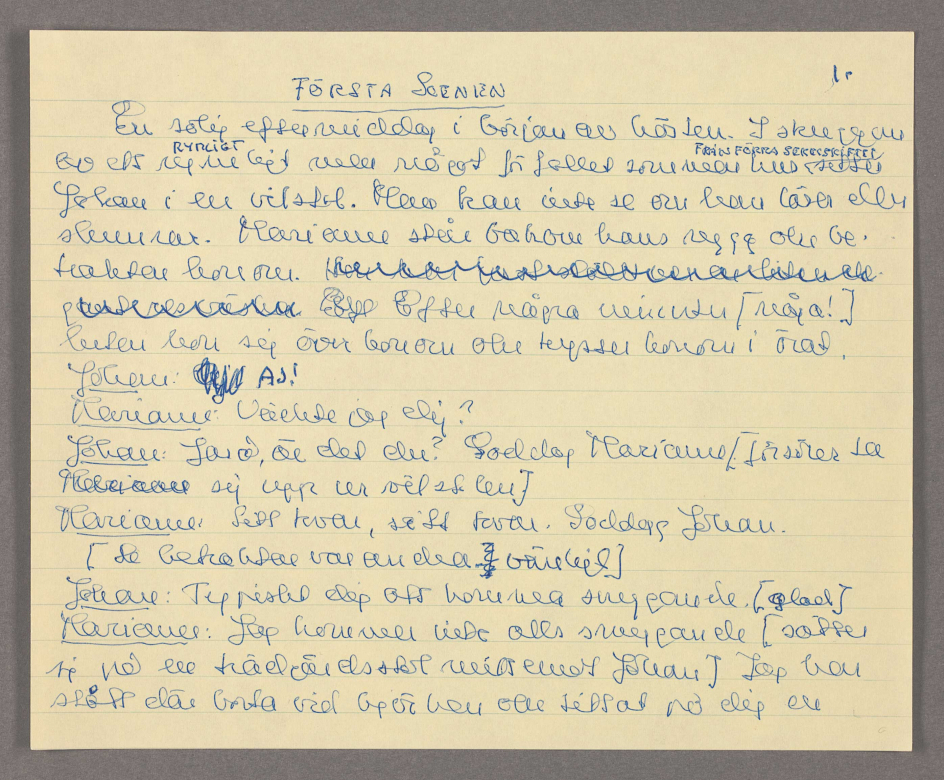 1.
FÖRSTA SCENEN
En solig eftermiddag i början av hösten. I skuggan
RYMLIGT FRÅN FÖRRA SEKELSKIFTET
av ett rymligt men något förfallet sommarhus sitter
Johan i en vilstol. Man kan inte se om han läser eller
slumrar. Marianne står bakom hans rygg och be-
traktar honom.
Efter några minuter [några!]
lutar hon sig över honom och kysser honom i örat.
Johan: Aj!
Marianne: Väckte jag dig?
Johan: Jaså, är det du? Goddag Marianne [försöker ta
Marianne sig upp ur vilstolen]
Marianne: Sitt kvar, sitt kvar. Goddag Johan.
[De betraktar varandra vänligt]
Johan: Typiskt dig att komma smygande. [glad]
Marianne: Jag kommer inte alls smygande [sätter
sig på en trädgårdsstol mittemot Johan] Jag har
stått där borta vid björken och tittat på dig en